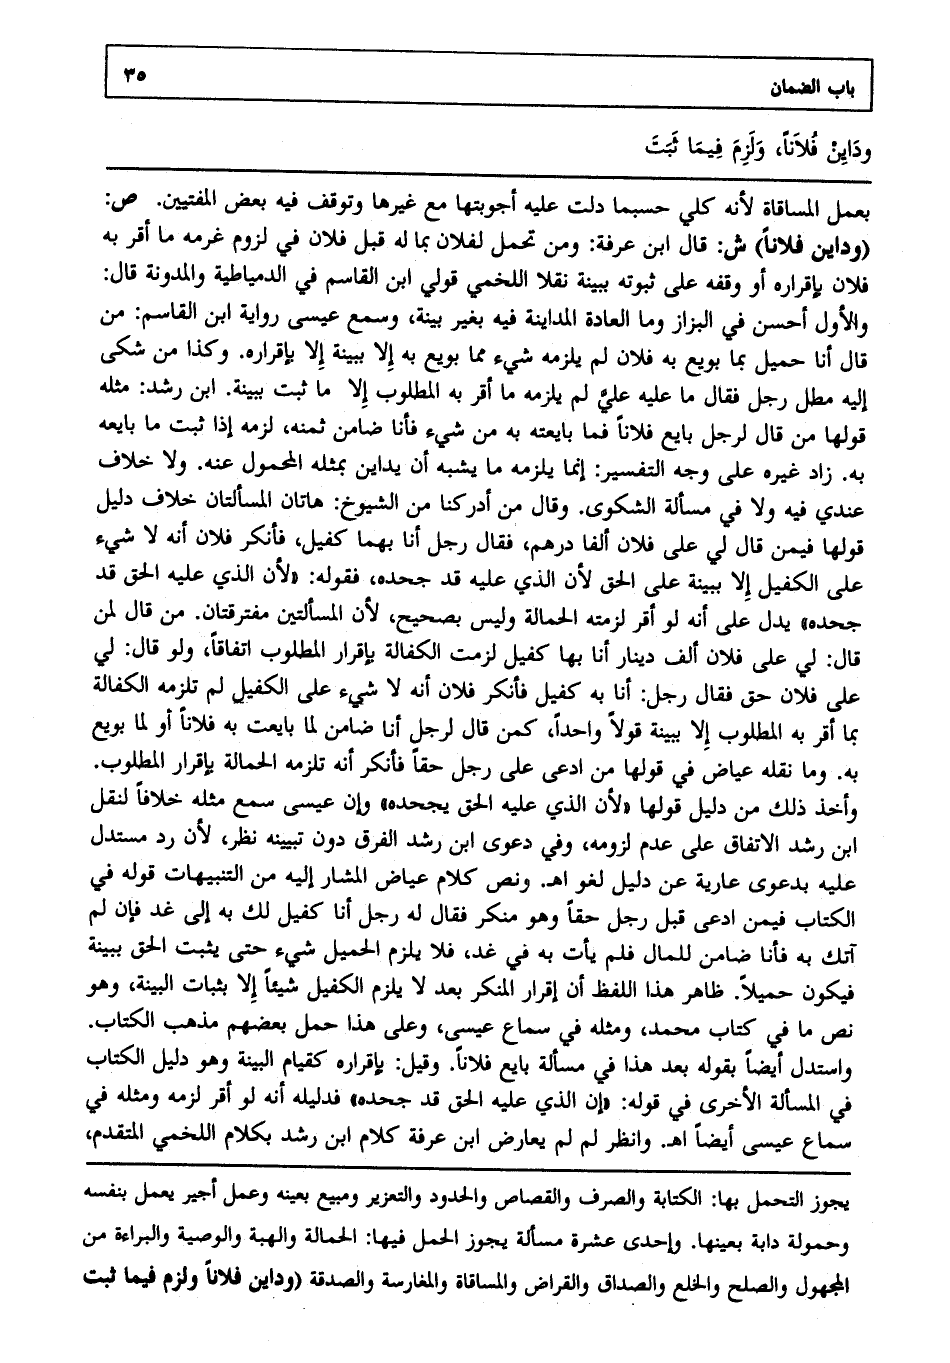 باب الضمان ٣٥
ودَايِنْ فُلاَناً، وَلَزِمَ فِيمَا ثَبَتَ
بعمل المساقاة لأنه كلي حسبما دلت عليه أجوبتها مع غيرها وتوقف فيه بعض المفتيين. ص:
(وداين فلاناً) ش: قال ابن عرفة: ومن تحمل لفلان بما له قبل فلان في لزوم غرمه ما أقر به
فلان بإقراره أو وقفه على ثبوته ببينة نقلا اللخمي قولي ابن القاسم في الدمياطية والمدونة قال:
والأول أحسن في البزاز وما العادة المداينة فيه بغير بينة، وسمع عيسى رواية ابن القاسم: من
قال أنا حميل بما بويع به فلان لم يلزمه شيء مما بويع به إِلا ببينة إِلا بإقراره. وكذا من شكى
إليه مطل رجل فقال ما عليه عليّ لم يلزمه ما أقر به المطلوب إِلا ما ثبت ببينة. ابن رشد: مثله
قولها من قال لرجل بايع فلاناً فما بايعته به من شيء فأنا ضامن ثمنه، لزمه إذا ثبت ما بايعه
به. زاد غيره على وجه التفسير: إنما يلزمه ما يشبه أن يداين بمثله المحمول عنه. ولا خلاف
عندي فيه ولا في مسألة الشكوى. وقال من أدركنا من الشيوخ: هاتان المسألتان خلاف دليل
قولها فيمن قال لي على فلان ألفا درهم، فقال رجل أنا بهما كفيل، فأنكر فلان أنه لا شيء
على الكفيل إِلا ببينة على الحق لأن الذي عليه قد جحده، فقوله: «لأن الذي عليه الحق قد
جحده» يدل على أنه لو أقر لزمته الحمالة وليس بصحيح، لأن المسألتين مفترقتان. من قال لمن
قال: لي على فلان ألف دينار أنا بها كفيل لزمت الكفالة بإقرار المطلوب اتفاقاً، ولو قال: لي
على فلان حق فقال رجل: أنا به كفيل فأنكر فلان أنه لا شيء على الكفيل لم تلزمه الكفالة
بما أقر به المطلوب إِلا ببينة قولاً واحداً، كمن قال لرجل أنا ضامن لما بايعت به فلاناً أو لما بويع
به. وما نقله عياض في قولها من ادعى على رجل حقاً فأنكر أنه تلزمه الحمالة بإقرار المطلوب.
وأخذ ذلك من دليل قولها «لأن الذي عليه الحق يجحده» وإن عيسى سمع مثله خلافاً لنقل
ابن رشد الاتفاق على عدم لزومه، وفي دعوى ابن رشد الفرق دون تبيينه نظر، لأن رد مستدل
عليه بدعوى عارية عن دليل لغو اهـ. ونص كلام عياض المشار إليه من التنبيهات قوله في
الكتاب فيمن ادعى قبل رجل حقاً وهو منكر فقال له رجل أنا كفيل لك به إلى غد فإن لم
آتك به فأنا ضامن للمال فلم يأت به في غد، فلا يلزم الحميل شيء حتى يثبت الحق ببينة
فيكون حميلاً. ظاهر هذا اللفظ أن إقرار المنكر بعد لا يلزم الكفيل شيئاً إِلا بثبات البينة، وهو
نص ما في كتاب محمد، ومثله في سماع عيسى، وعلى هذا حمل بعضهم مذهب الكتاب.
واستدل أيضاً بقوله بعد هذا في مسألة بايع فلاناً. وقيل: بإقراره كقيام البينة وهو دليل الكتاب
في المسألة الأخرى في قوله: «إن الذي عليه الحق قد جحده» فدليله أنه لو أقر لزمه ومثله في
سماع عيسى أيضاً اهـ. وانظر لم لم يعارض ابن عرفة كلام ابن رشد بكلام اللخمي المتقدم،
يجوز التحمل بها: الكتابة والصرف والقصاص والحدود والتعزير ومبيع بعينه وعمل أجير يعمل بنفسه
وحمولة دابة بعينها. وإحدى عشرة مسألة يجوز الحمل فيها: الحمالة والهبة والوصية والبراءة من
المجهول والصلح والخلع والصداق والقراض والمساقاة والمغارسة والصدقة (وداين فلاناً ولزم فيما ثبت